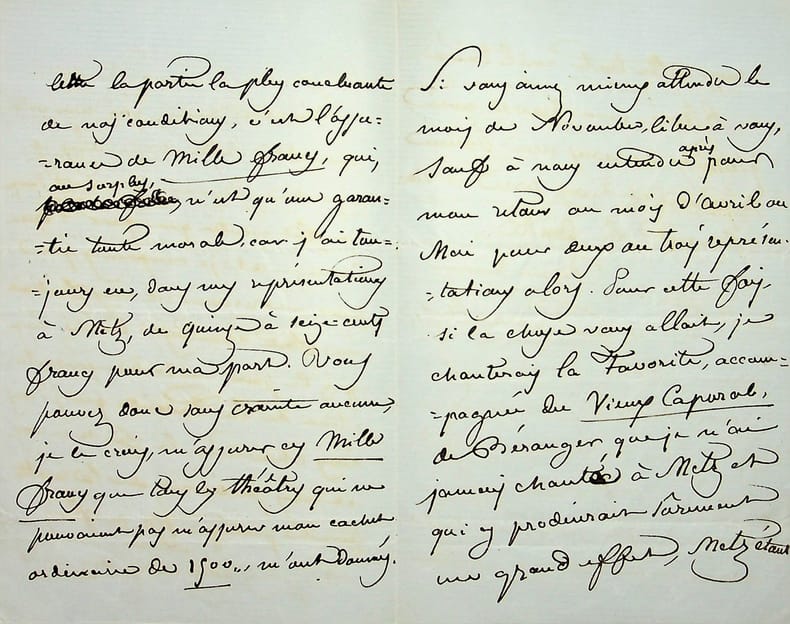 lette la partie la plus concluante
de nos conditions, c'est l'assu=
=rance de Mille francs, qui,
au surplus,
n'est qu'une garan=
=tie toute morale, car j'ai tou=
=jours eu, dans mes représentations
à Metz, de quinze à seize-cents
francs pour ma part. Vous
pouvez donc sans crainte aucune,
je le crois, m'assurer ces Mille
francs que tous les théâtres qui ne
pouvaient pas m'assurer mon cachet
ordinaire de 1500,, m'ont donnés.
Si vous aimez mieux attendre le
mois de Novembre, libre à vous,
après
sauf à nous entendre pour
mon retour au mois d'avril ou
Mai pour deux ou trois représen=
=tations alors. Pour cette fois,
si la chose vous allait, je
chanterais la Favorite, accom=
=pagnée du Vieux Caporal,
de Béranger que je n'ai
jamais chanté à Metz et
qui y produirait sûrement
un grand effet, Metz étant